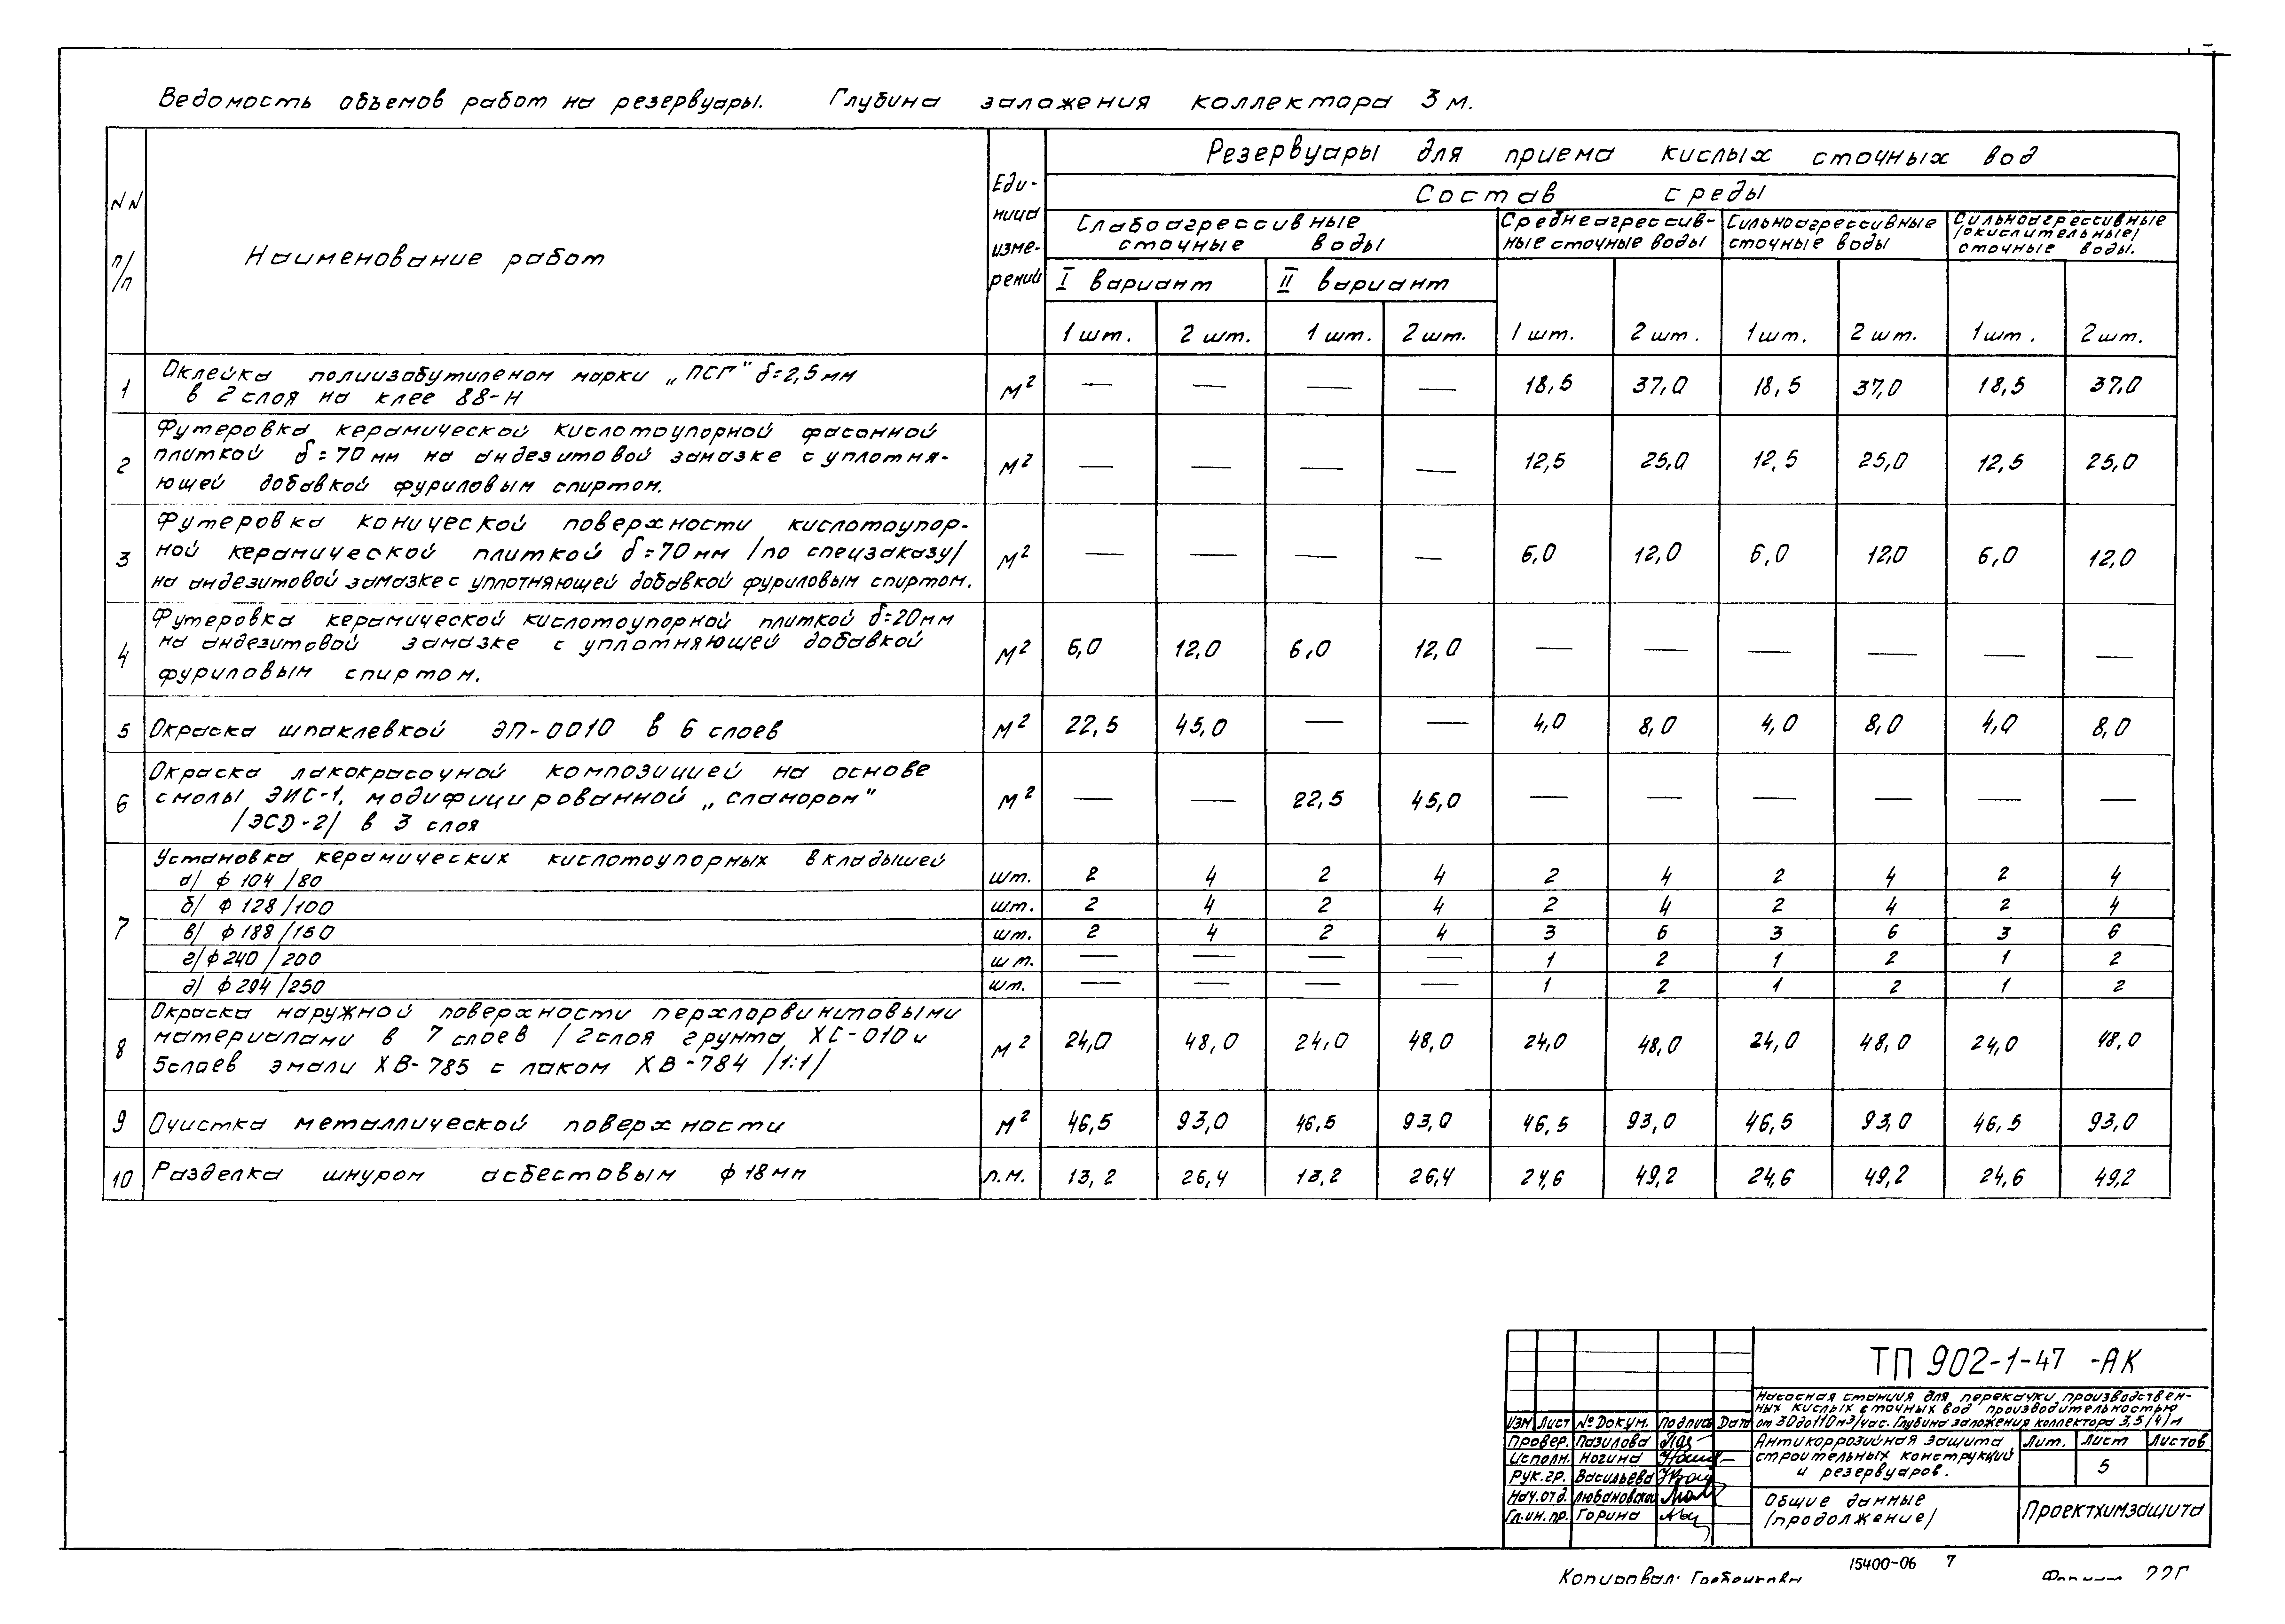 Ведомость объемов работ на резервуары. Глубина заложения коллектора 3 м.
NN п/п
Наименование работ
Еди-
ница
изме-
рений
Резервуары для приема кислых сточных вод
Состав среды
Слабоагрессивные сточные воды
Среднеагрессив-
ные сточные воды
Сильноагрессивные
сточные воды
Сильноагрессивные
/окислительные/
сточные воды.
I вариант II вариант
1 шт. 2 шт. 1 шт. 2 шт. 1 шт. 2 шт. 1 шт. 2 шт. 1 шт. 2 шт.
1 Оклейка полиизобутиленом марки „ПСГ" δ=2,5 мм
в 2 слоя на клее 88-Н
м² — — — — 18,5 37,0 18,5 37,0 18,5 37,0
2 Футеровка керамической кислотоупорной фасонной
плиткой δ=70 мм на андезитовой замазке с уплотня-
ющей добавкой фуриловым спиртом.
м² — — — — 12,5 25,0 12,5 25,0 12,5 25,0
3 Футеровка конической поверхности кислотоупор-
ной керамической плиткой δ=70 мм /по спецзаказу/
на андезитовой замазке с уплотняющей добавкой фуриловым спиртом.
м² — — — — 6,0 12,0 6,0 12,0 6,0 12,0
4 Футеровка керамической кислотоупорной плиткой δ=20 мм
на андезитовой замазке с уплотняющей добавкой
фуриловым спиртом.
м² 6,0 12,0 6,0 12,0 — — — — — —
5 Окраска шпаклевкой ЭП-0010 в 6 слоев м² 22,5 45,0 — — 4,0 8,0 4,0 8,0 4,0 8,0
6 Окраска лакокрасочной композицией на основе
смолы ЭИС-1, модифицированной „сламором"
/ЭСД-2/ в 3 слоя
м² — — 22,5 45,0 — — — — — —
7 Установка керамических кислотоупорных вкладышей
а/ ф 104/80 шт. 2 4 2 4 2 4 2 4 2 4
б/ ф 128/100 шт. 2 4 2 4 2 4 2 4 2 4
в/ ф 188/150 шт. 2 4 2 4 3 6 3 6 3 6
г/ ф 240/200 шт. — — — — 1 2 1 2 1 2
д/ ф 294/250 шт. — — — — 1 2 1 2 1 2
8 Окраска наружной поверхности перхлорвиниловыми
материалами в 7 слоев /2 слоя грунта ХС-010 и
5 слоев эмали ХВ-785 с лаком ХВ-784 /1:1/
м² 24,0 48,0 24,0 48,0 24,0 48,0 24,0 48,0 24,0 48,0
9 Очистка металлической поверхности м² 46,5 93,0 46,5 93,0 46,5 93,0 46,5 93,0 46,5 93,0
10 Разделка шнуром асбестовым ф 18 мм п.м. 13,2 26,4 13,2 26,4 24,6 49,2 24,6 49,2 24,6 49,2
ТП 902-1-47 -АК
Насосная станция для перекачки производствен-
ных кислых сточных вод производительностью
от 30 до 110 м³/час. Глубина заложения коллектора 3,5/4/м
Изм Лист № Докум. Подпись Дата
Провер. Пазилова
Исполн. Ногина
Рук. гр. Васильева
Нач. отд. Любановская
Гл. ин. пр. Горина
Антикоррозийная защита
строительных конструкций
и резервуаров.
Лит. Лист Листов
5
Общие данные
/продолжение/
Проектхимзащита
15400-06 7
Копировал:
Формат 22Г